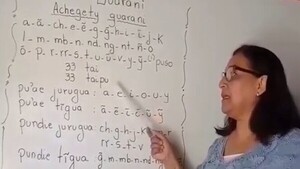 Guarani
Achegety guarani
a - ã - ch - e - ẽ - g - g̃ - h - i - ĩ - j - k
l - m - mb - n - nd - ng - nt - ñ - o
õ - p - r - rr - s - t - u - ũ - v - y - ỹ - (') puso
33 tai
33 taipu
pu'ae jurugua : a - e - i - o - u - y
pu'ae tĩgua : ã - ẽ - ĩ - õ - ũ - ỹ
pundie jurugua ch - g - h - j - k
rr - s - t - v
pundie tĩgua : g̃ - m - mb - n - nd - ng